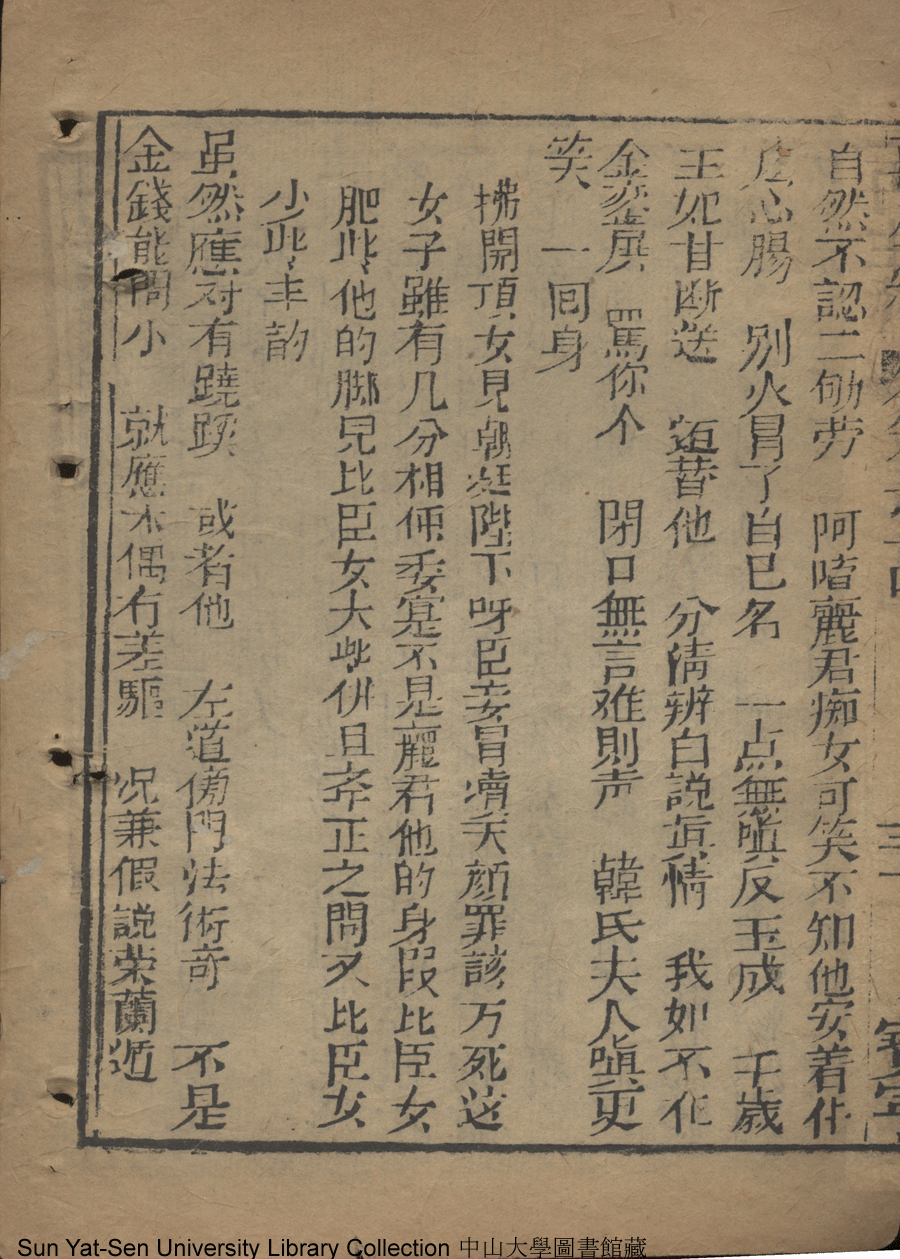 自然不認二劬劳 阿唷麗君痴女可笑不知他安着什
庅心腸 别火冒了自已名 一点無嗔反玉成 千歲
王妃甘断送 替他 分清辨白説真情 我如不在
金銮 罵你个 閉口無言难則声 韓氏夫人嗔更
笑 一回身
拂開頂女見朝廷陛下呀臣妾冒凟天顔罪該万死这
女子雖有几分相価委寔不是麗君他的身叚比臣女
肥些他的脚兒比臣女大些併且齐正之間又比臣女
少些丰韵
虽然應对有蹺蹊 或者他 左道傍門法術奇 不是
金錢能間小 就應木偶有差驅 况兼假説荣蘭逃
Sun Yat-Sen University Library Collection 中山大學圖書館藏